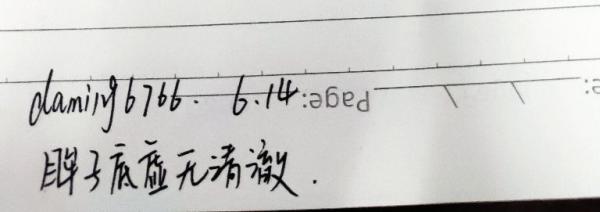 daming6766. 6.14 Page:
眸子底虚无清澈.